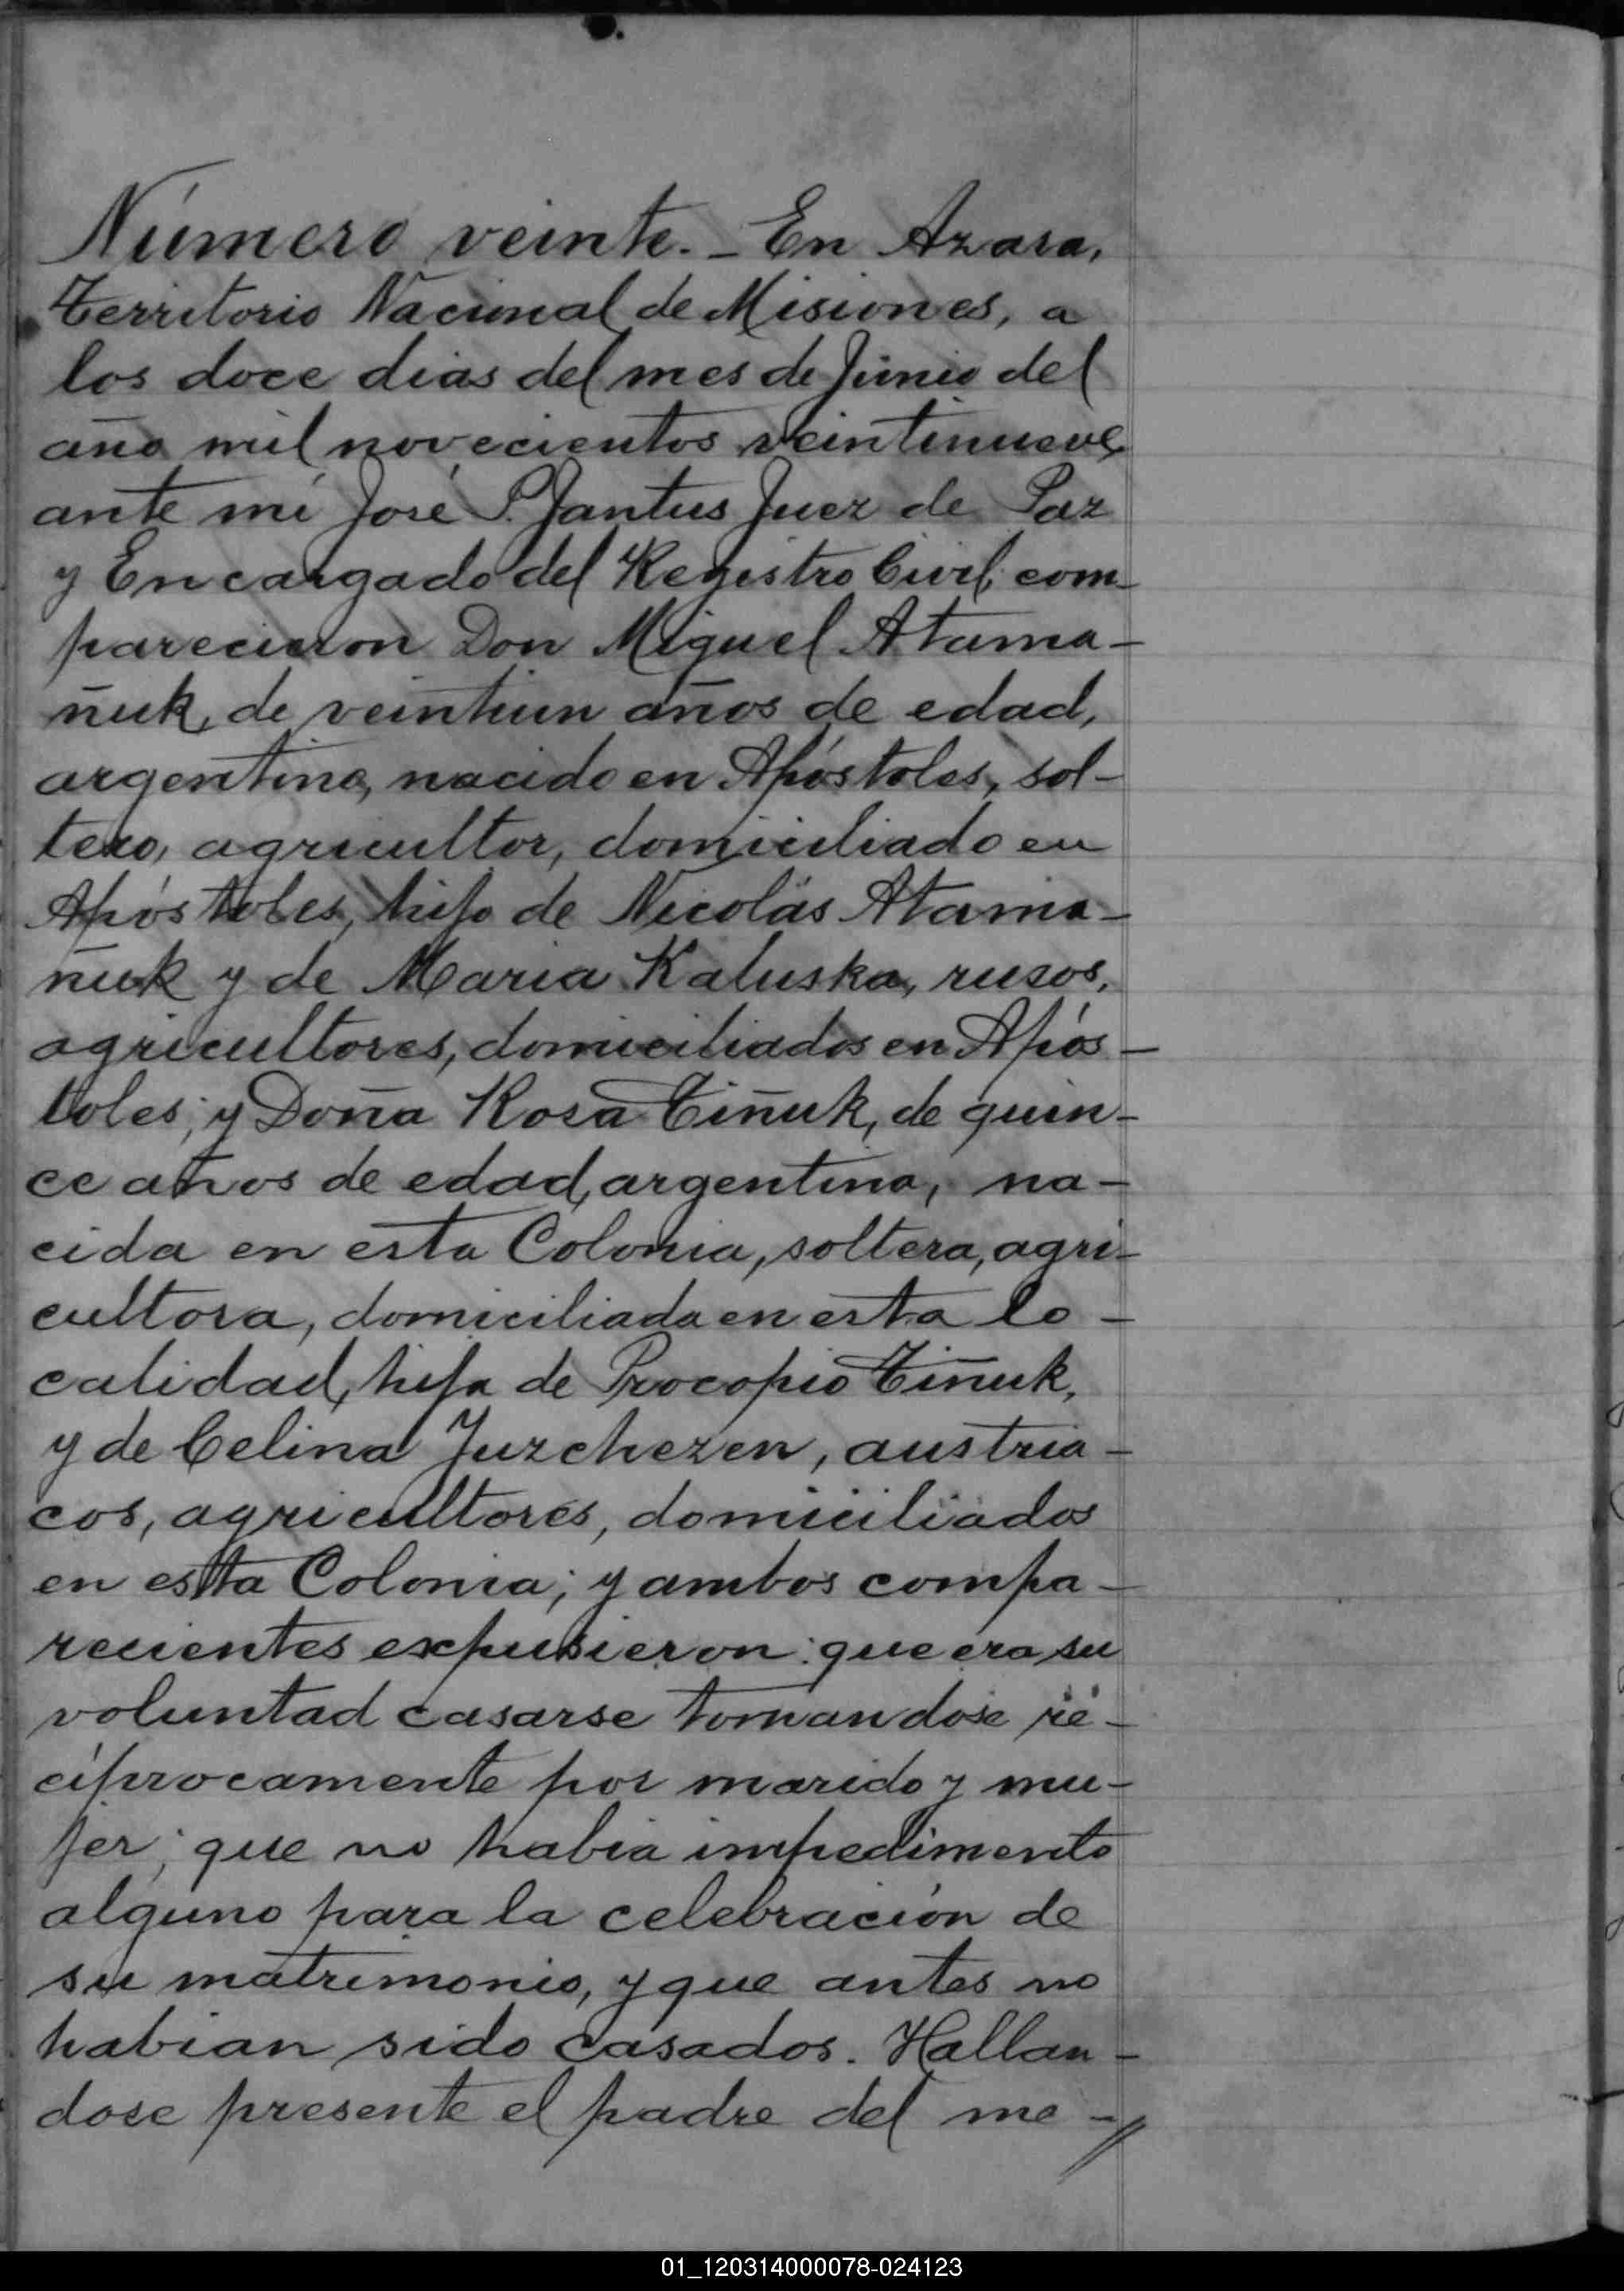 Número veinte. – En Azara,
Territorio Nacional de Misiones, a
los doce dias del mes de Junio del
año mil novecientos veintinueve,
ante mi José P. Jantus Juez de Paz
y Encargado del Registro Civil, com-
parecieron Don Miguel Atama-
ñuk, de veintiun años de edad,
argentino, nacido en Apóstoles, sol-
tero, agricultor, domiciliado en
Apóstoles, hijo de Nicolás Atama-
ñuk y de Maria Kaluska, rusos,
agricultores, domiciliados en Após-
toles; y Doña Rosa Tiñuk, de quin-
ce años de edad, argentina, na-
cida en esta Colonia, soltera, agri-
cultora, domiciliada en esta lo-
calidad, hija de Procopio Tiñuk,
y de Celina Jurchezen, austria-
cos, agricultores, domiciliados
en esta Colonia; y ambos compa-
recientes expusieron: que era su
voluntad casarse tomandose re-
cíprocamente por marido y mu-
jer; que no habia impedimento
alguno para la celebración de
su matrimonio, y que antes no
habian sido casados. Hallan-
dose presente el padre del me-//
01_120314000078-024123